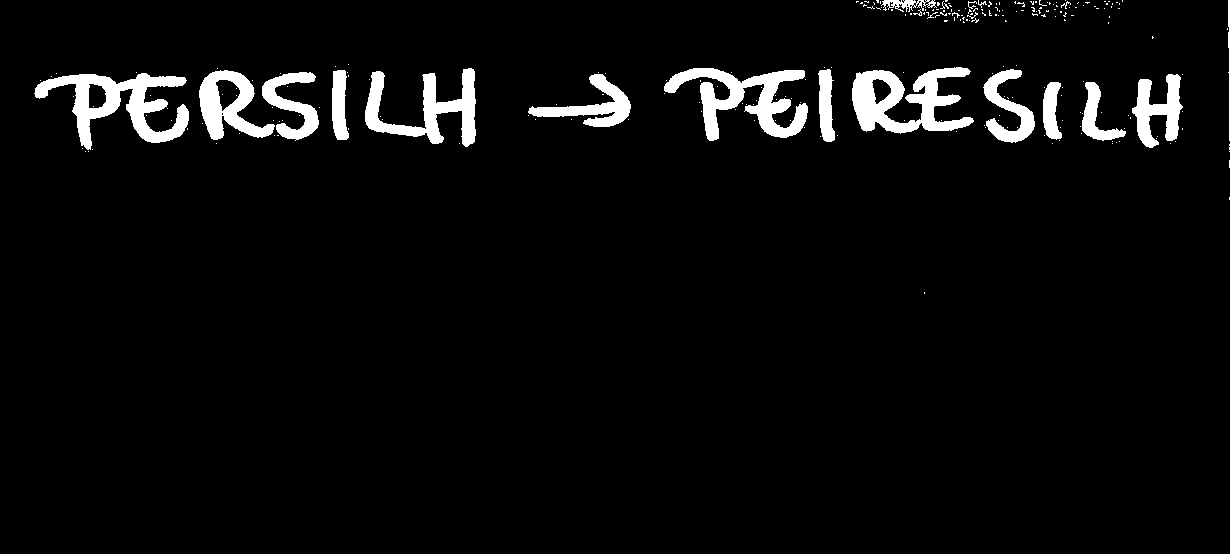 PERSILH → PEIRESILH